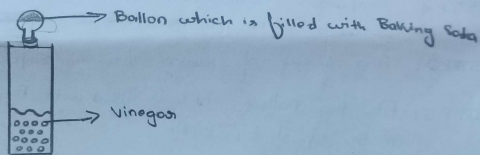 Ballon which is filled with Baking Soda
Vinegar